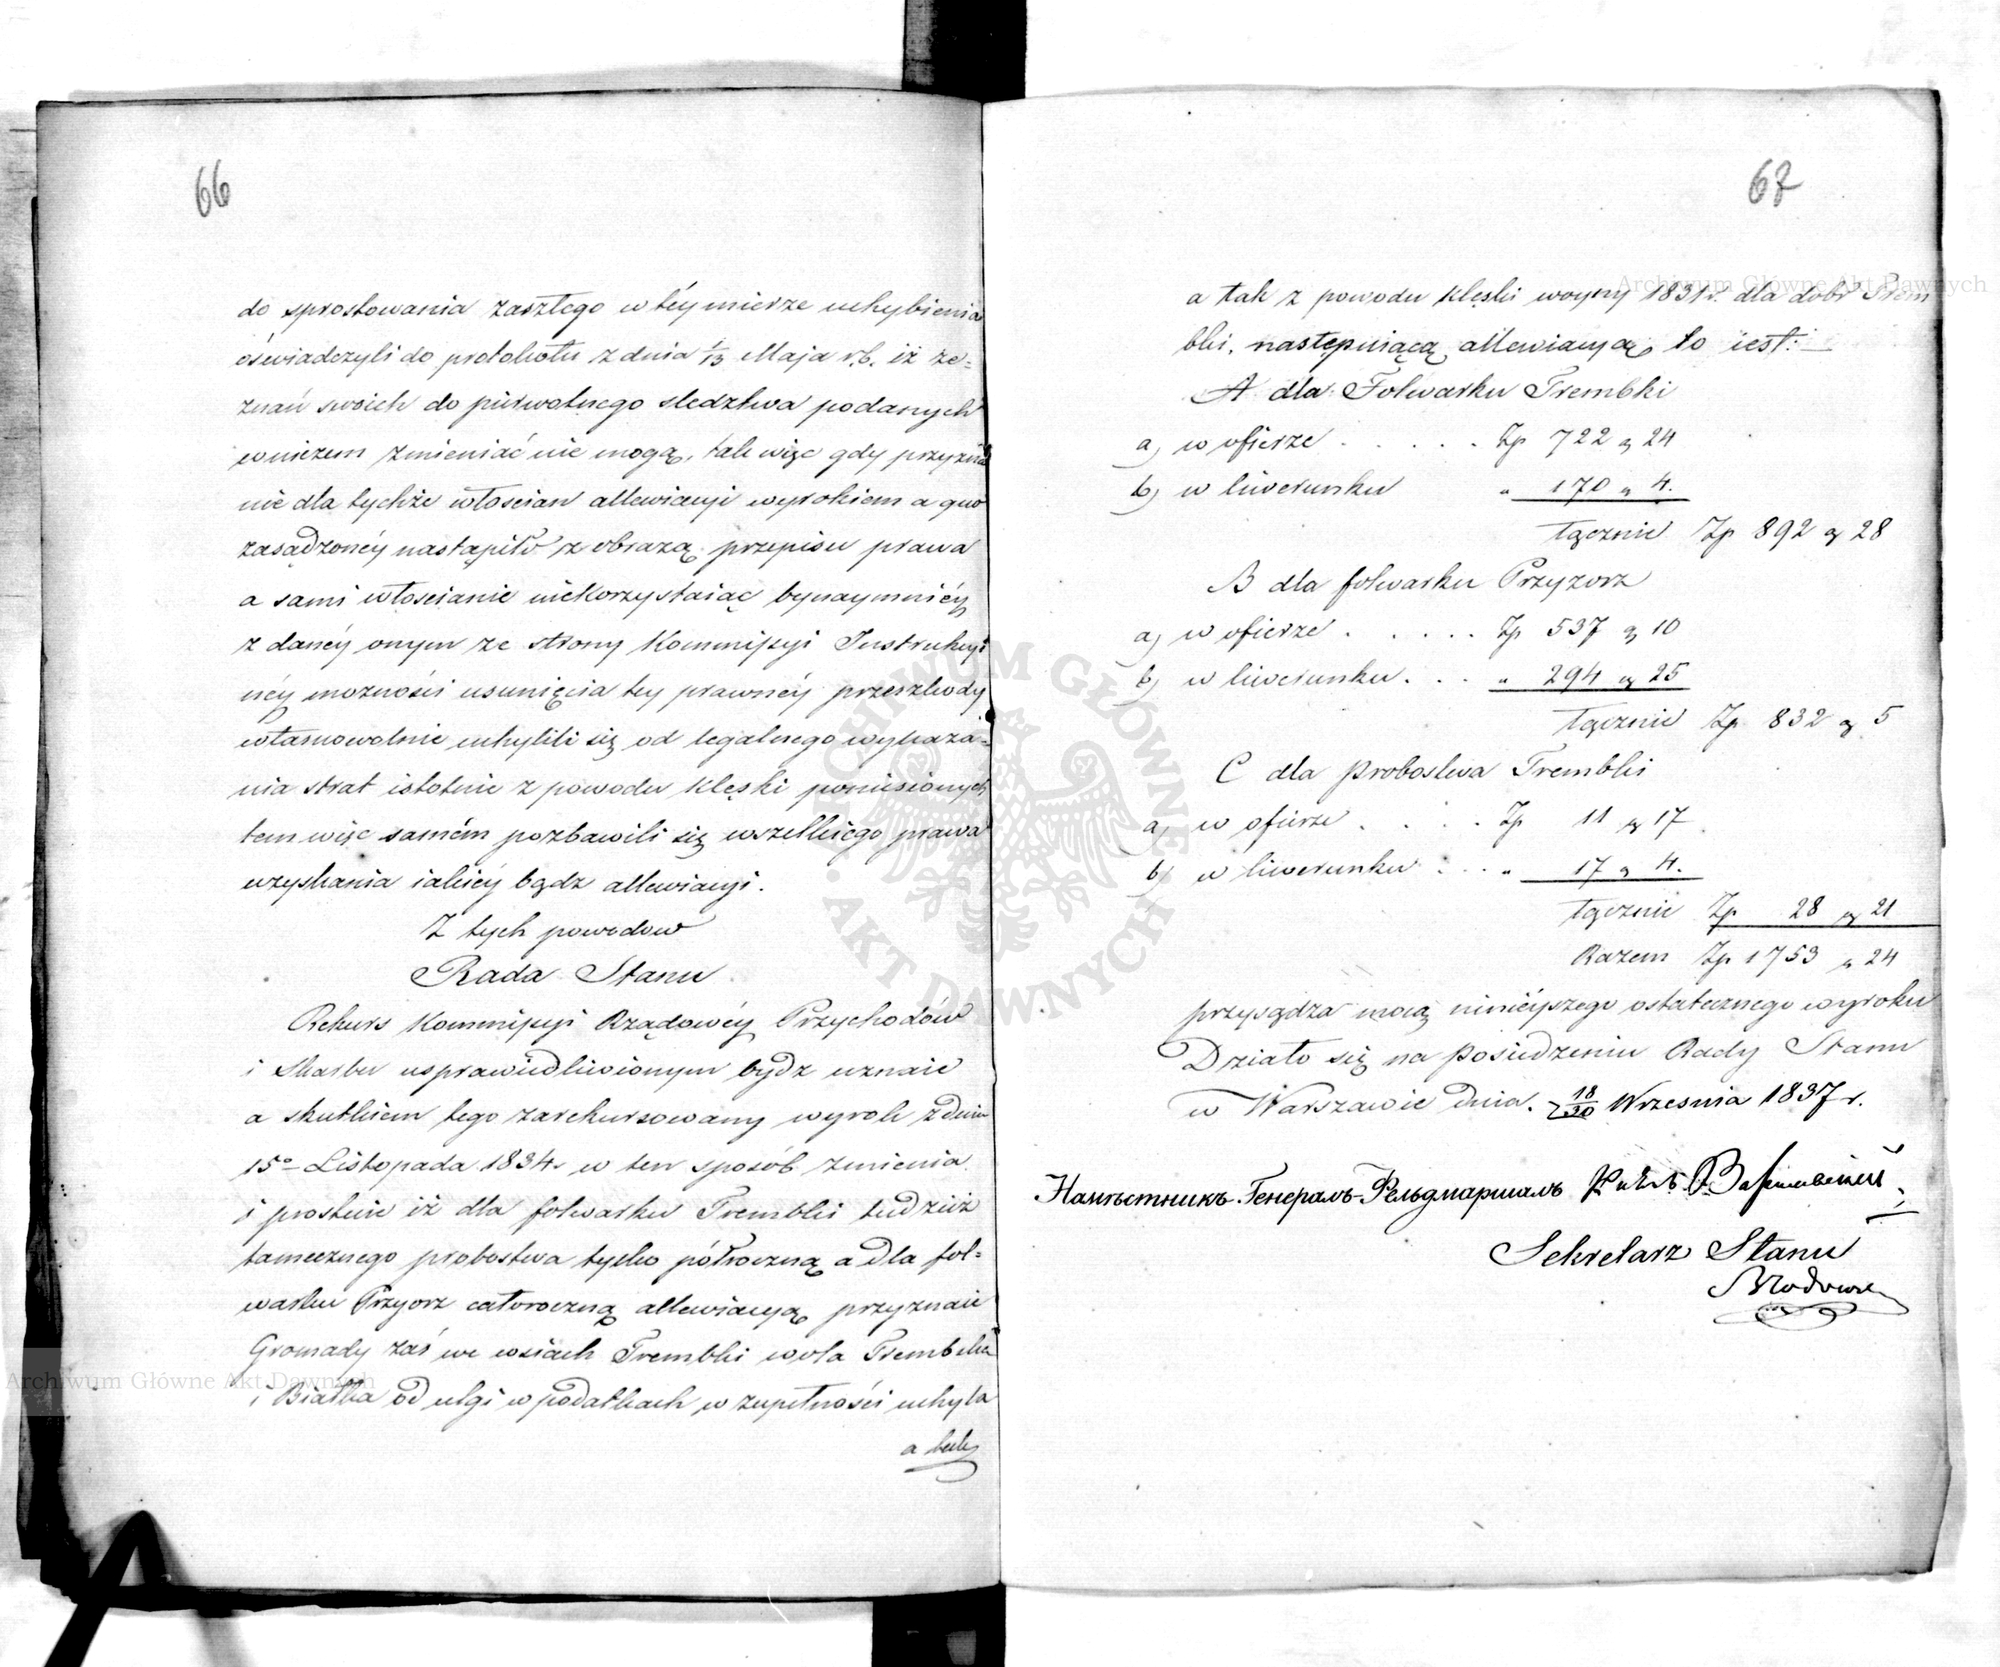 66
do sprostowania zaszłego w téy mierze uchybienia
oświadczyli do protokołu z dnia 1/13 Maja r.b. iż ze=
znań swoich do pierwotnego śledztwa podanych
w niczem zmieniać nie mogą, tak więc gdy przyzna
nie dla tychże włościan allewiacyi wyrokiem a quo
zasądzonéy nastąpiło z obrazą przepisu prawa
a sami włościanie niekorzystaiąc bynaymniéy
z danéy onym ze strony Kommissyi Instrukcyi
néy możności usunięcia téy prawnéy przeszkody
własnowolnie uchylili się od legalnego wykaza=
nia strat istotnie z powodu klęski poniesionych
tem więc samém pozbawili się wszelkiego prawa
uzyskania iakiéy bądz allewiacyi.
Z tych powodow
Rada Stanu
Rekurs Kommissyi Rządowéy Przychodów
i Skarbu usprawiedliwionym bydz uznaie
a skutkiem tego zarekursowany wyrok z dnia
15o Listopada 1834 w ten sposób zmienia
i prostuie iż dla folwarku Trembki tudzież
tamecznego probostwa tylko półroczną a dla fol=
warku Przyorz całoroczną allewiacyą przyznaie
Gromady zaś we wsiach Trembki wola Trembska
i Białka od ulgi w podatkach w zupełności uchyla
a tak
67
a tak z powodu klęski woyny 1831 r. dla dobr Trem
bki, następuiącą allewiacyą to iest:
A dla Folwarku Trembki
a) w ofierze . . . . . Zp 722 g 24
b) w liwerunku " 170 " 4.
łącznie Zp 892 g 28
B dla folwarku Przyzorz
a) w ofierze . . . . . Zp 537 g 10
b) w liwerunku . . . " 294 g 25
łącznie Zp 832 g 5
C dla Probostwa Trembki
a) w ofierze . . . . Zp 11 g 17
b) w liwerunku . . . " 17 g 4.
łącznie Zp 28 g 21
Razem Zp 1753 g 24
przysądza mocą ninieyszego ostatecznego wyroku
Działo się na posiedzeniu Rady Stanu
w Warszawie dnia. 18/30 Wrzesnia 1837 r.
Намѣстникъ Генералъ-Фельдмаршалъ
Sekretarz Stanu
Archiwum Główne Akt Dawnych
Archiwum Główne Akt Dawnych
ARCHIWUM GŁÓWNE AKT DAWNYCH